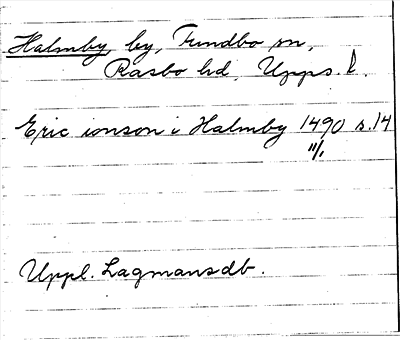 Halmby by, Fundbo sn,
Rasbo hd, Upps. l.
Eric ionson i Halmby 1490 s. 14
11/1
Uppl. Lagmansdb.